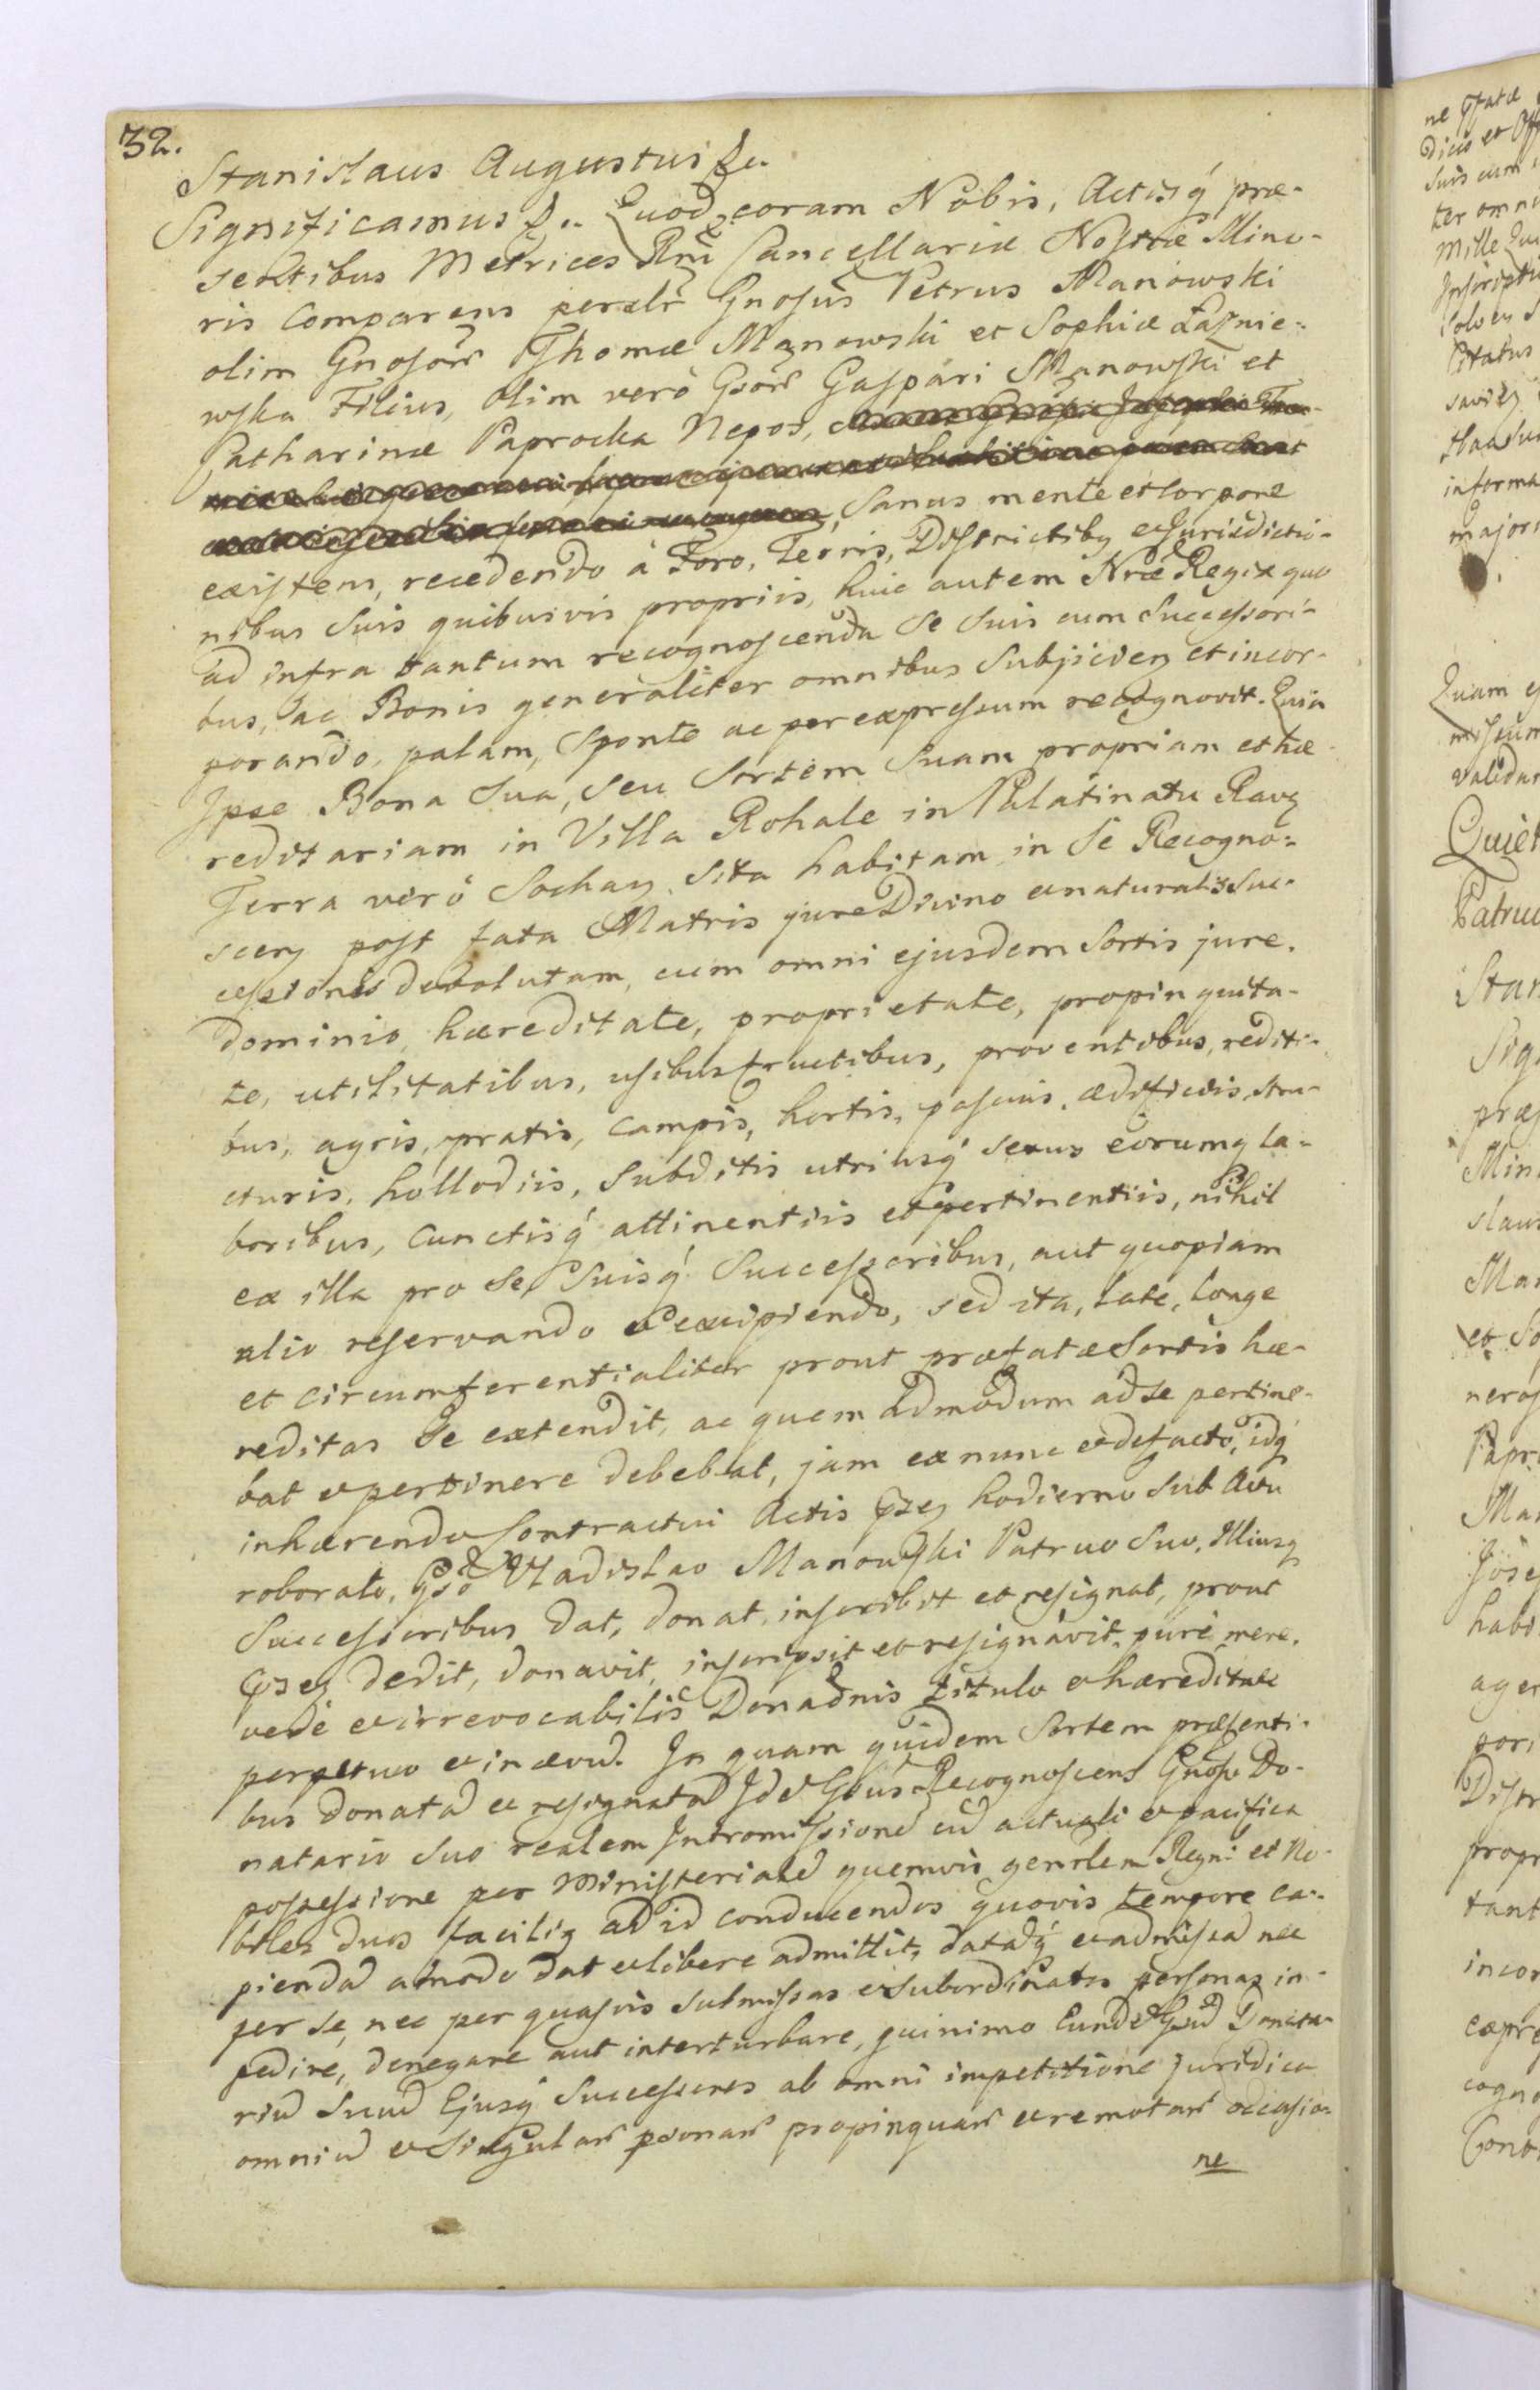 32.
Stanislaus Augustus &c.
Significamus &c. Quod coram Nobis, Actisq́ præ-
sentibus Metrices Rni Cancellariæ Nostræ Mino-
ris Comparens peralr Gnosus Petrus Manowski
olim Gnosor Thomæ Manowski et Sophiæ Łaznie-
wska Filius, Olim verò Gsor Gaspári Manowski et
Catharinæ Paprocka Nepos,
Sanus mente et Corpore
existens, recedendo à Foro, Terris, Districtibq et Jurisdictio-
nibus Suis quibusvis propriis, huic autem Nræ Regiæ quo
ad infra tantum recognoscenda Se Suis cum Successori-
bus, ac Bonis generaliter omnibus Subjicien et incor-
porando, palam, Sponte ac per expressum recognovit. Quia
Ipse Bona Sua, Seu Sortem Suam propriam et hæ-
reditariam in Villa Rohale in Palatinatu Rav
Terra verò Sochaz sita habitam in Se Recogno-
scen post fata Matris jure Divino et naturalis suc-
cessionis devolutam, cum omni ejusdem Sortis jure.
dominio, hæreditate, proprietate, propinquita-
te, utilitatibus, usibusfructibus, proventibus, rediti-
bus, agris, pratis, campis, hortis, pascuis, ædificiis, stru-
cturis, hollodiis, Subditis utriusq́ sexus eorumq la-
boribus, Cunctisq́ attinentiis et pertinentiis, nihil
ex illa pro Se, Suisq́ Successoribus, aut quopiam
alio reservando et excipiendo, sed ita, late, longe
et circumferentialiter prout præfatæ Sortis hæ-
reditas Se extendit, ac quem admodum ad se pertine-
bat et pertinere debebat, jam ex nunc et de facto, idq́
inhærendo Contractui Actis przn hodierno Sub Actu
roborato, Gso Vladislao Manowski Patruo Suo, Illiusq
Successoribus dat, donat, inscribit et resignat, prout
przn dedit, donavit, inscripsit et resignavit, purè mere.
verè et irrevocabilis Donaonis titulo et hæreditate
perpetuo et in ævu. In quam quidem Sortem præsenti-
bus donata et resignata Ide Gsus Recognoscens Gnoso Do-
natario Suo realem Intromissione cu actuali et pacifica
possessione per Ministeriale quemvis genrlem Regni et No-
biles duos faciliq ad id conducendos quovis tempore ca-
pienda amodo dat et libere admittit, dataq́ et admissa nec
per se, nec per quasvis submissas et subordinatas personas im-
pedire, denegare aut interturbare, quinimo Eunde Gsu Donata-
riu Suu Ejusq́ Successores ab omni impetitione juridica
omniu et Singular psonar propinquar et remotar occasio-
ne
ne
dicis et
suis cum
ter omni
Mille
Inscripti
Solven
Citatus
informa
majori
Quam
validar
Quiet
Patruo
Stan
Sig
præs
Min
slaus
Man
et So
neros
Papr
Man
Jose
habi
ager
pori
Distr
propr
tant
incor
expre
cogno
Cont